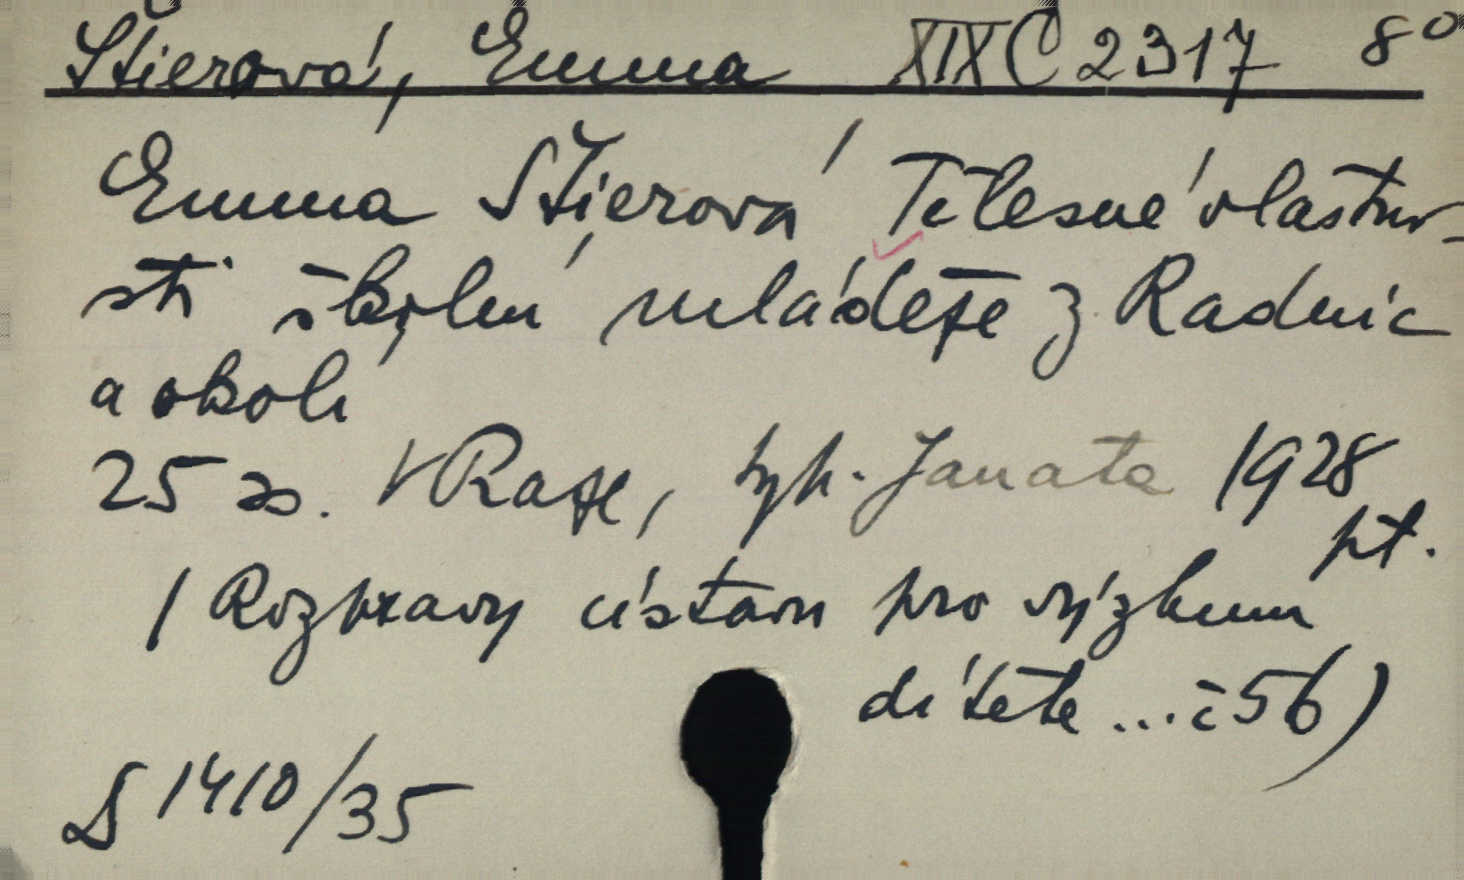 Štierová, Emma XIX C 2317 8°
Emma Štierová Tělesné vlastno-
sti školní mládeže z Radnic
a okolí
25 ss. V Praze, typ. Janata 1928
př.
(Rozpravy ústavu pro výzkum
dítěte ... č 56)
S 1410/35